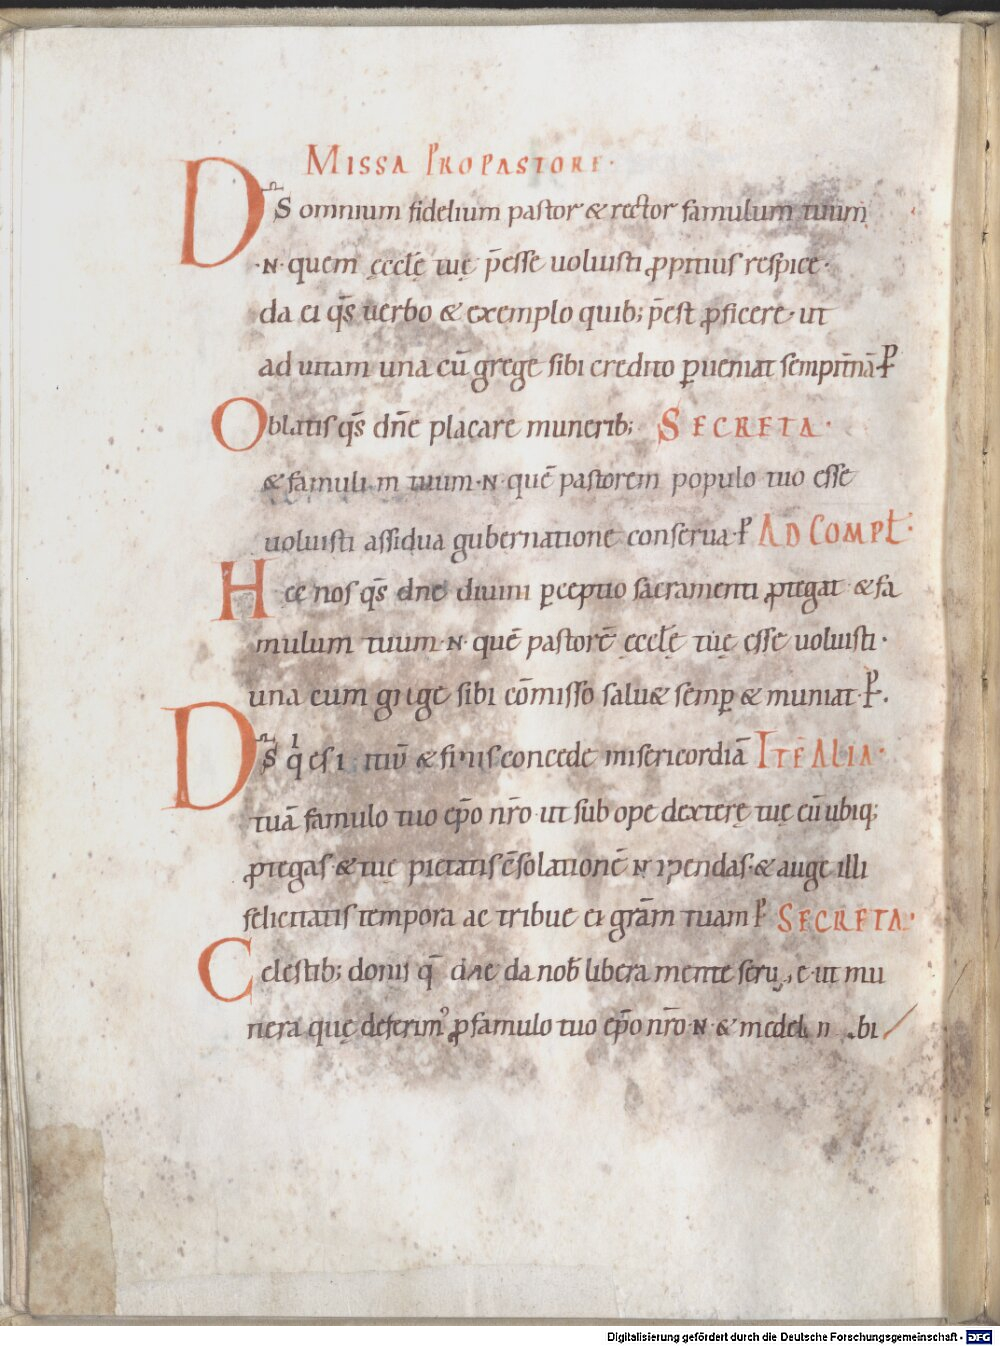 MISSA PRO PASTORE·
DS̄ omnium fidelium pastor & rector famulum tuum
·N· quem ęcclę̄ tuę p̄esse uoluisti ꝓpitius respice·
da ei qs̄ uerbo & exemplo quib; p̄est ꝓficere· ut
ad uitam una cū grege sibi credito ꝑueniat sempit̄nā· P̱
Oblatis qs̄ dn̄e placare munerib; SECRETA·
& famulum tuum ·N· quē pastorem populo tuo esse
uoluisti assidua gubernatione conserua· P̱ AD COMPL̄·
Hęc nos qs̄ dne diuini ꝑceptio sacramenti ꝓtegat & fa
mulum tuum ·N· quē pastorē ęcclę̄ tuę esse uoluisti·
una cum grege sibi cōmisso saluet semꝑ & muniat· P̱·
DS̄ qi es iustitiū & finis concede misericordiā ITĒ ALIA·
tuā famulo tuo ep̄o nr̄o· ut sub ope dexterę tuę cū ubiq;
ꝓtegas· & tuę pietatis c̄solationē & auge illi
felicitatis tempora ac tribue ei grām tuam P̱ SECRETA·
Celestib; donis q̄ dne da nob̄ libera mente ut mu
nera quę deferim' ꝓ famulo tuo ep̄o nr̄o ·N· &
Digitalisierung gefördert durch die Deutsche Forschungsgemeinschaft · DFG